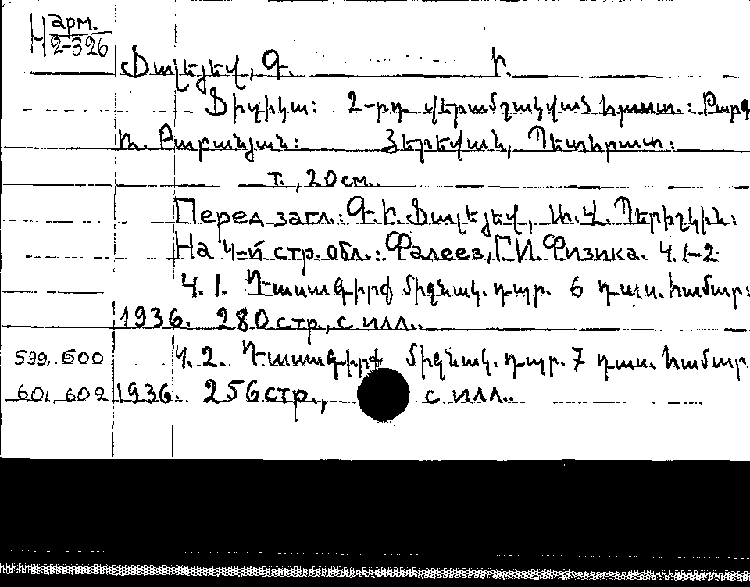 Н арм.
2-326
Ֆալեյեվ, Գ. Ի.
Ֆիզիկա: 2-րդ վերամշակված հրատ.: Թարգ
Ա. Թարանյան: Յերեվան, Պետհրատ:
т., 20см.
Перед загл.: Գ. Ի. Ֆալեյեվ, Ա. Վ. Պերիշկին:
На 4-й стр. обл.: Фалеев, Г.И. Физика. Ч.1-2
Ч. 1. Դասագիրք միջնակ. դպր. 6 դաս. համար:
1936. 280 стр., с илл..
599. 600 Ч. 2. Դասագիրք միջնակ. դպր. 7 դաս. համար
601, 602 1936. 256 стр., с илл..